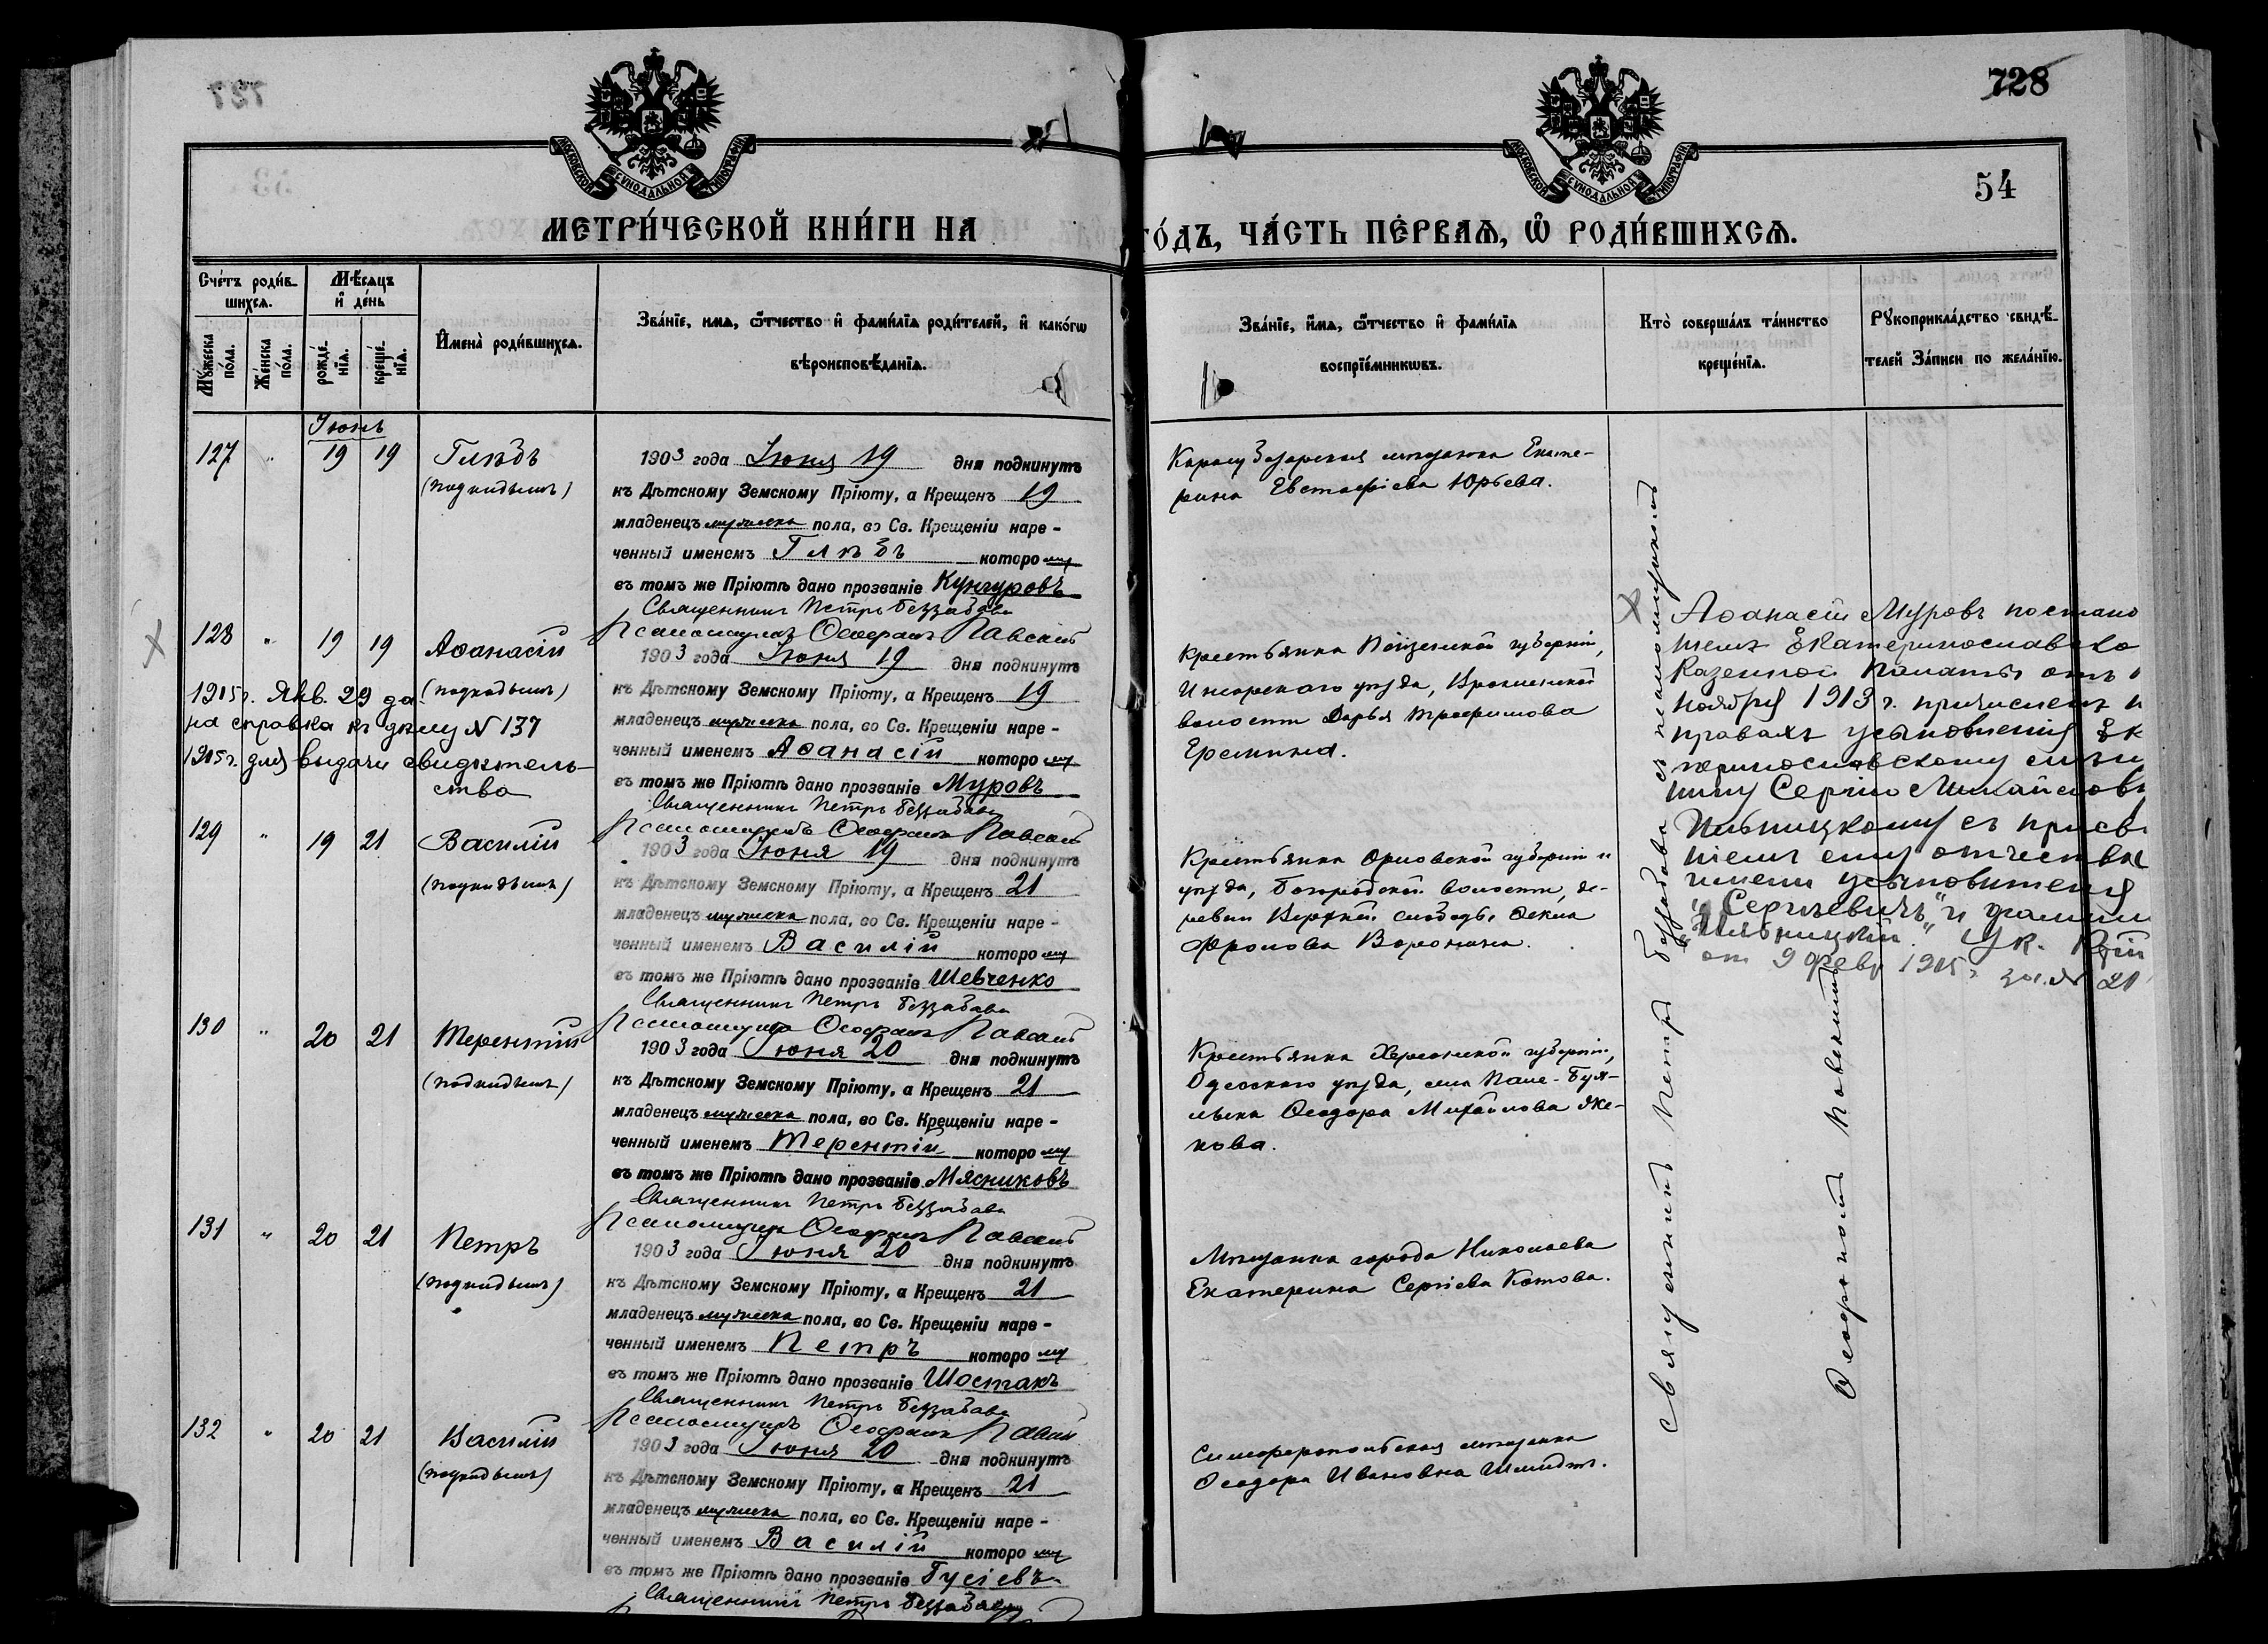 727
728
54
МОСКОВСКОЙ СѴНОДАЛЬНОЙ ТИПОГРАФІИ
МОСКОВСКОЙ СѴНОДАЛЬНОЙ ТИПОГРАФІИ
МЕТРИ́ЧЕСКОЙ КНИ́ГИ НА
ГО́ДЪ, ЧА́СТЬ ПЕ́РВАѦ, Ѽ РОДИ́ВШИХСѦ.
Сче́тъ роди́в-
шихсѧ.
Мѣ́сѧцъ
и҆ де́нь
Мꙋ́жеска по́ла.
Же́нска по́ла.
рожде́-
нїѧ.
креще́-
нїѧ.
И҆мена̀ роди́вшихсѧ.
Зва́нїе, и҆мѧ, ѻ҆́тчество и҆ фами́лїѧ роди́телей, и҆ како́гѡ
вѣроисповѣ́данїѧ.
Зва́нїе, и҆́мѧ, ѻ҆́тчество и҆ фами́лїѧ
воспрїе́мникѡвъ.
Кто̀ соверша́лъ та́инство
креще́нїѧ.
Рꙋкоприкла́дство свидѣ́-
телей За́писи по жела́нїю.
Іюнь
127 " 19 19 Глѣбъ
(подкидышъ)
1903 года Іюня 19 дня подкинутъ
къ Дѣтскому Земскому Пріюту, а Крещенъ 19
младенецъ мужеска пола, во Св. Крещеніи наре-
ченный именемъ Глѣбъ которому
въ томъ же Пріютѣ дано прозваніе Кунгуровъ
Священникъ Петръ Беззабава
Псаломщикъ Ѳеофанъ Павскій
Карасубазарская мѣщанка Екате-
рина Евстафіева Юрьева.
128 " 19 19 Аѳанасій
(подкидышъ)
1915 г. Янв. 29 да-
на справка къ дѣлу № 137
1915 г. для выдачи свидѣтель-
ства
1903 года Іюня 19 дня подкинутъ
къ Дѣтскому Земскому Пріюту, а Крещенъ 19
младенецъ мужеска пола, во Св. Крещеніи наре-
ченный именемъ Аѳанасій которому
въ томъ же Пріютѣ дано прозваніе Муровъ
Священникъ Петръ Беззабава
Псаломщикъ Ѳеофанъ Павскій
Крестьянка Пензенской губерніи,
уѣзда,
волости Дарья Трофимова
Еремина.
Аѳанасій Муровъ постано
темъ Екатеринославско
Казенной Палаты отъ
ноября 1913 г. причисленъ н
правахъ усыновленія Ек
теринославскому мѣща
нину Сергію Михайлов
Пильницкому съ присв
ніемъ ему отчества
имени усыновителя
„Сергѣевичъ" и фамили
„Пильницкій." Ук.
от 9 февр 1915 г за № 21
129 " 19 21 Василій
(подкидышъ)
1903 года Іюня 19 дня подкинутъ
къ Дѣтскому Земскому Пріюту, а Крещенъ 21
младенецъ мужеска пола, во Св. Крещеніи наре-
ченный именемъ Василій которому
въ томъ же Пріютѣ дано прозваніе Шевченко
Священникъ Петръ Беззабава
Псаломщикъ Ѳеофанъ Павскій
Крестьянка Орловской губерніи и
уѣзда, Богородской волости, де-
ревни слободы
Фролова Воронина.
130 " 20 21 Терентій
(подкидышъ)
1903 года Іюня 20 дня подкинутъ
къ Дѣтскому Земскому Пріюту, а Крещенъ 21
младенецъ мужеска пола, во Св. Крещеніи наре-
ченный именемъ Терентій которому
въ томъ же Пріютѣ дано прозваніе Мясниковъ
Священникъ Петръ Беззабава
Псаломщикъ Ѳеофанъ Павскій
Крестьянка Херсонской губерніи,
Одесскаго уѣзда, села
Ѳеодора Михайлова Яке-
нова.
131 " 20 21 Петръ
(подкидышъ)
1903 года Іюня 20 дня подкинутъ
къ Дѣтскому Земскому Пріюту, а Крещенъ 21
младенецъ мужеска пола, во Св. Крещеніи наре-
ченный именемъ Петръ которому
въ томъ же Пріютѣ дано прозваніе Шостакъ
Священникъ Петръ Беззабава
Псаломщикъ Ѳеофанъ Павскій
Мѣщанка города Николаева
Екатерина Сергіева Котова.
132 " 20 21 Василій
(подкидышъ)
1903 года Іюня 20 дня подкинутъ
къ Дѣтскому Земскому Пріюту, а Крещенъ 21
младенецъ мужеска пола, во Св. Крещеніи наре-
ченный именемъ Василій которому
въ томъ же Пріютѣ дано прозваніе Гусіевъ
Священникъ Петръ Беззабава
Симферопольская мѣщанка
Ѳеодора Ивановна Шмидтъ.
Священникъ Петръ Беззабава съ псаломщикомъ
Ѳеофаномъ Павскимъ